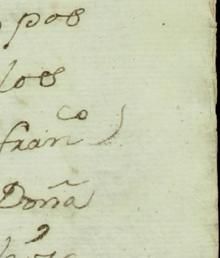 pos
los
fran^co
Doña